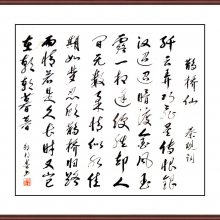 鹊桥仙 秦观词
纤云弄巧飞星传恨银
汉迢迢暗度金风玉
露一相逢便胜却人
间无数柔情似水佳
期如梦忍顾鹊桥归路
两情若是久长时又岂
在朝朝暮暮